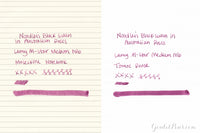 Noodler's Black Swan in
Australian Roses
Lamy Al-Star Medium Nib
Moleskine Notebook
xxxx
Noodler's Black Swan in
Australian Roses
Lamy Al-Star Medium Nib
Tomoe River
xxxx